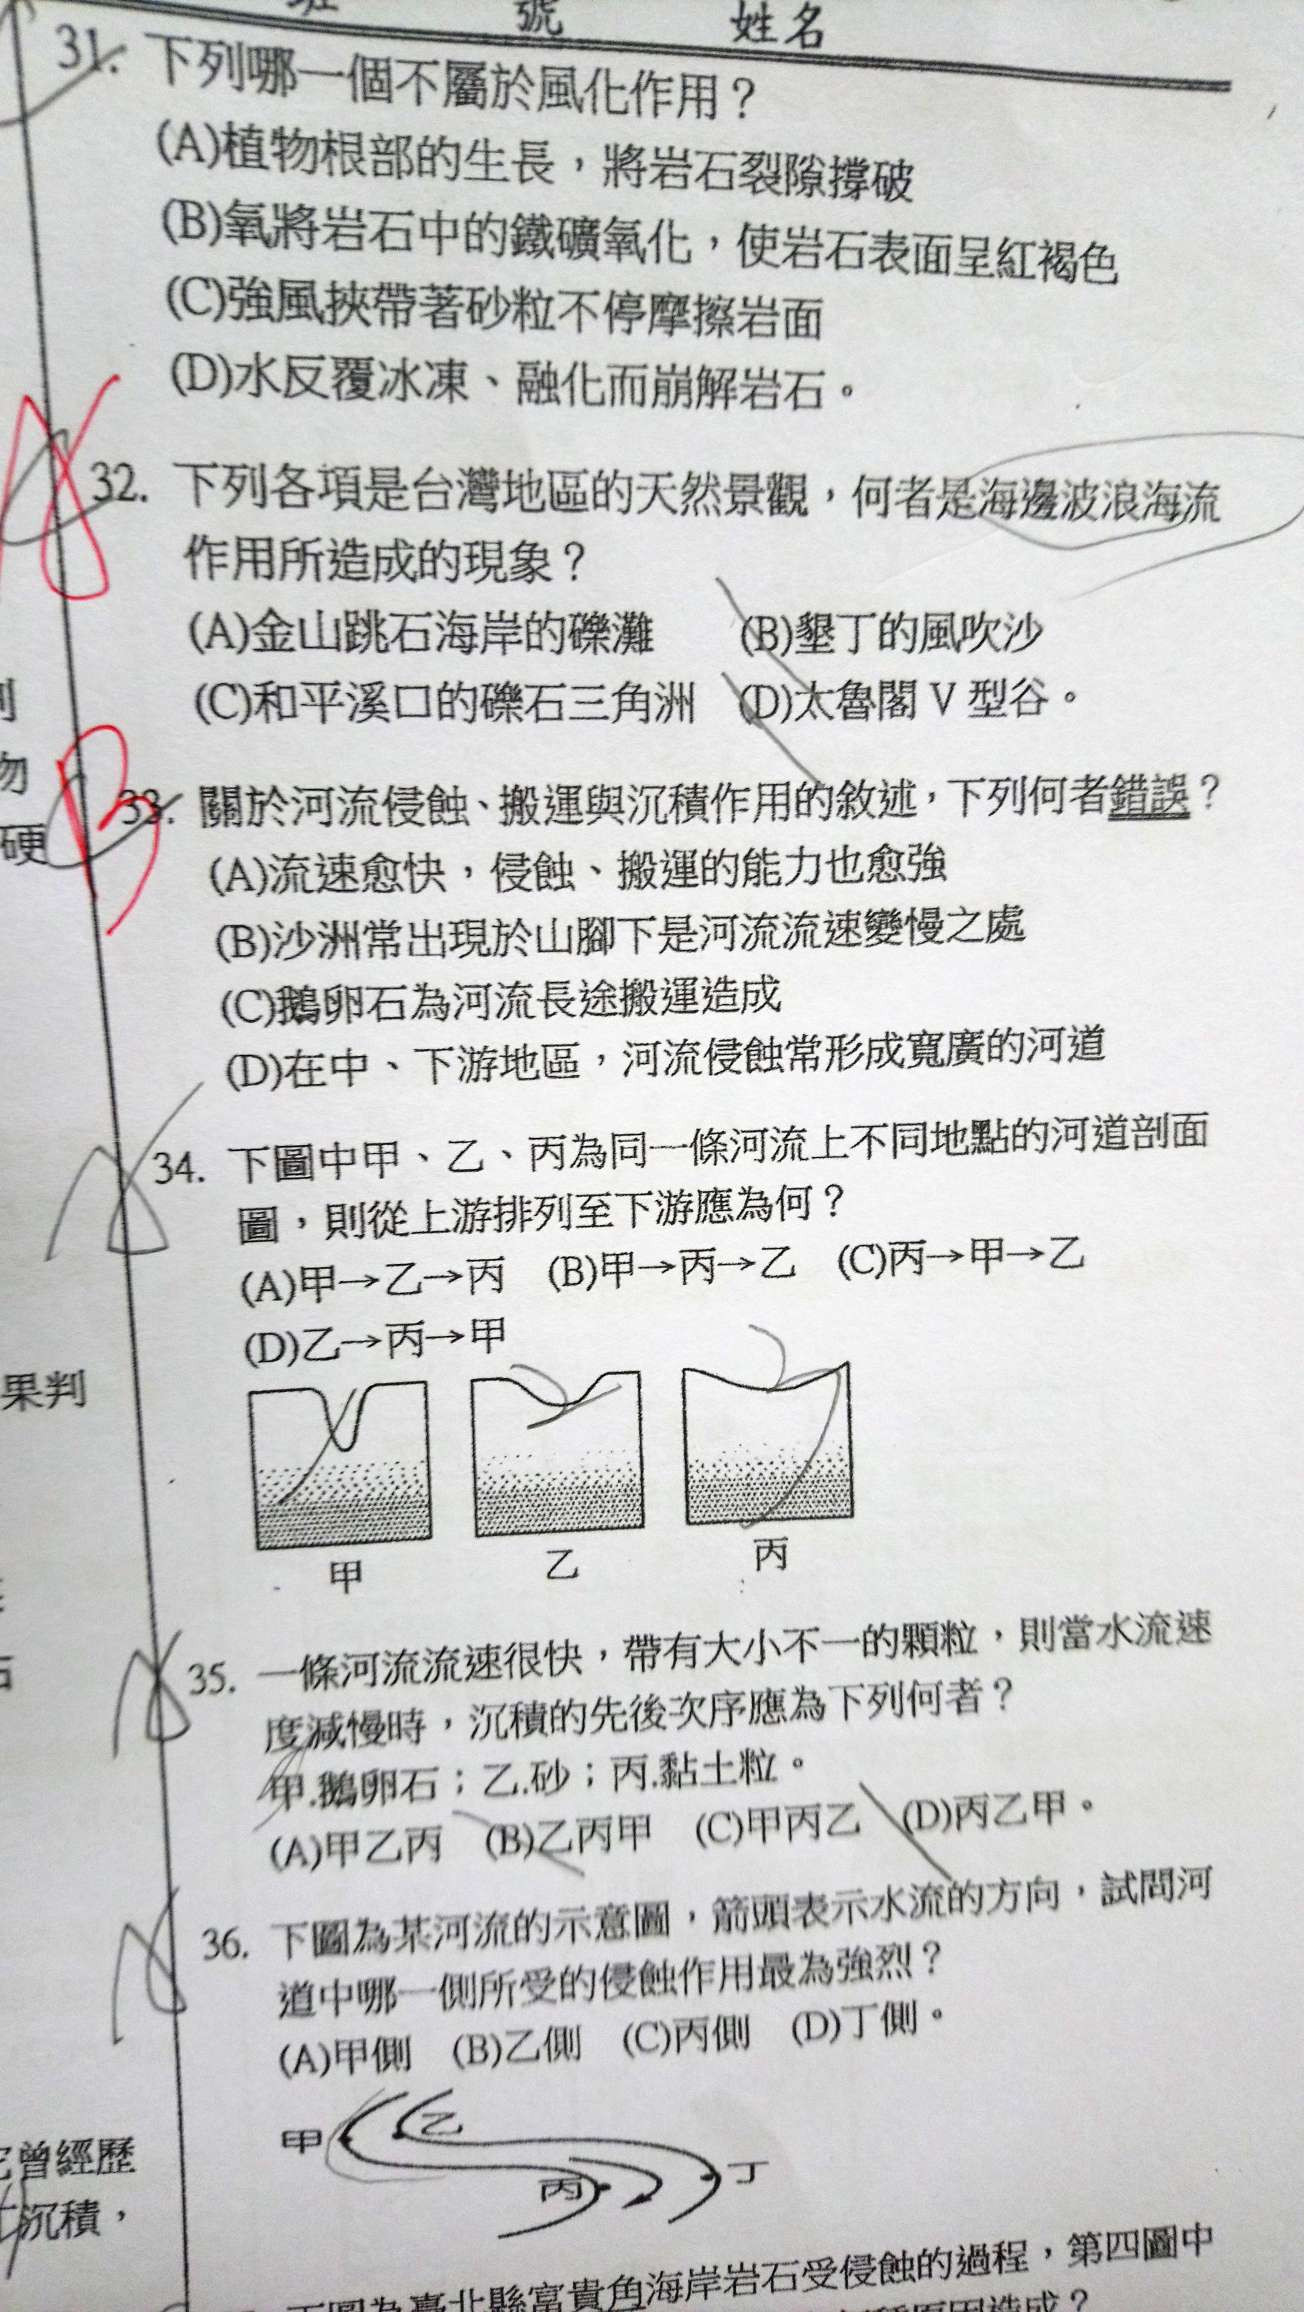 號 姓名
31. 下列哪一個不屬於風化作用？
(A)植物根部的生長，將岩石裂隙撐破
(B)氧將岩石中的鐵礦氧化，使岩石表面呈紅褐色
(C)強風挾帶著砂粒不停摩擦岩面
(D)水反覆冰凍、融化而崩解岩石。
A
32. 下列各項是台灣地區的天然景觀，何者是海邊波浪海流
作用所造成的現象？
(A)金山跳石海岸的礫灘 (B)墾丁的風吹沙
(C)和平溪口的礫石三角洲 (D)太魯閣 V 型谷。
物
硬
B
33. 關於河流侵蝕、搬運與沉積作用的敘述，下列何者錯誤？
(A)流速愈快，侵蝕、搬運的能力也愈強
(B)沙洲常出現於山腳下是河流流速變慢之處
(C)鵝卵石為河流長途搬運造成
(D)在中、下游地區，河流侵蝕常形成寬廣的河道
A
34. 下圖中甲、乙、丙為同一條河流上不同地點的河道剖面
圖，則從上游排列至下游應為何？
(A)甲→乙→丙 (B)甲→丙→乙 (C)丙→甲→乙
(D)乙→丙→甲
果判
甲 乙 丙
A
35. 一條河流流速很快，帶有大小不一的顆粒，則當水流速
度減慢時，沉積的先後次序應為下列何者？
甲.鵝卵石；乙.砂；丙.黏土粒。
(A)甲乙丙 (B)乙丙甲 (C)甲丙乙 (D)丙乙甲。
A
36. 下圖為某河流的示意圖，箭頭表示水流的方向，試問河
道中哪一側所受的侵蝕作用最為強烈？
(A)甲側 (B)乙側 (C)丙側 (D)丁側。
甲 乙
丙 丁
曾經歷
沉積，
下圖為臺北縣富貴角海岸岩石受侵蝕的過程，第四圖中
原因造成？